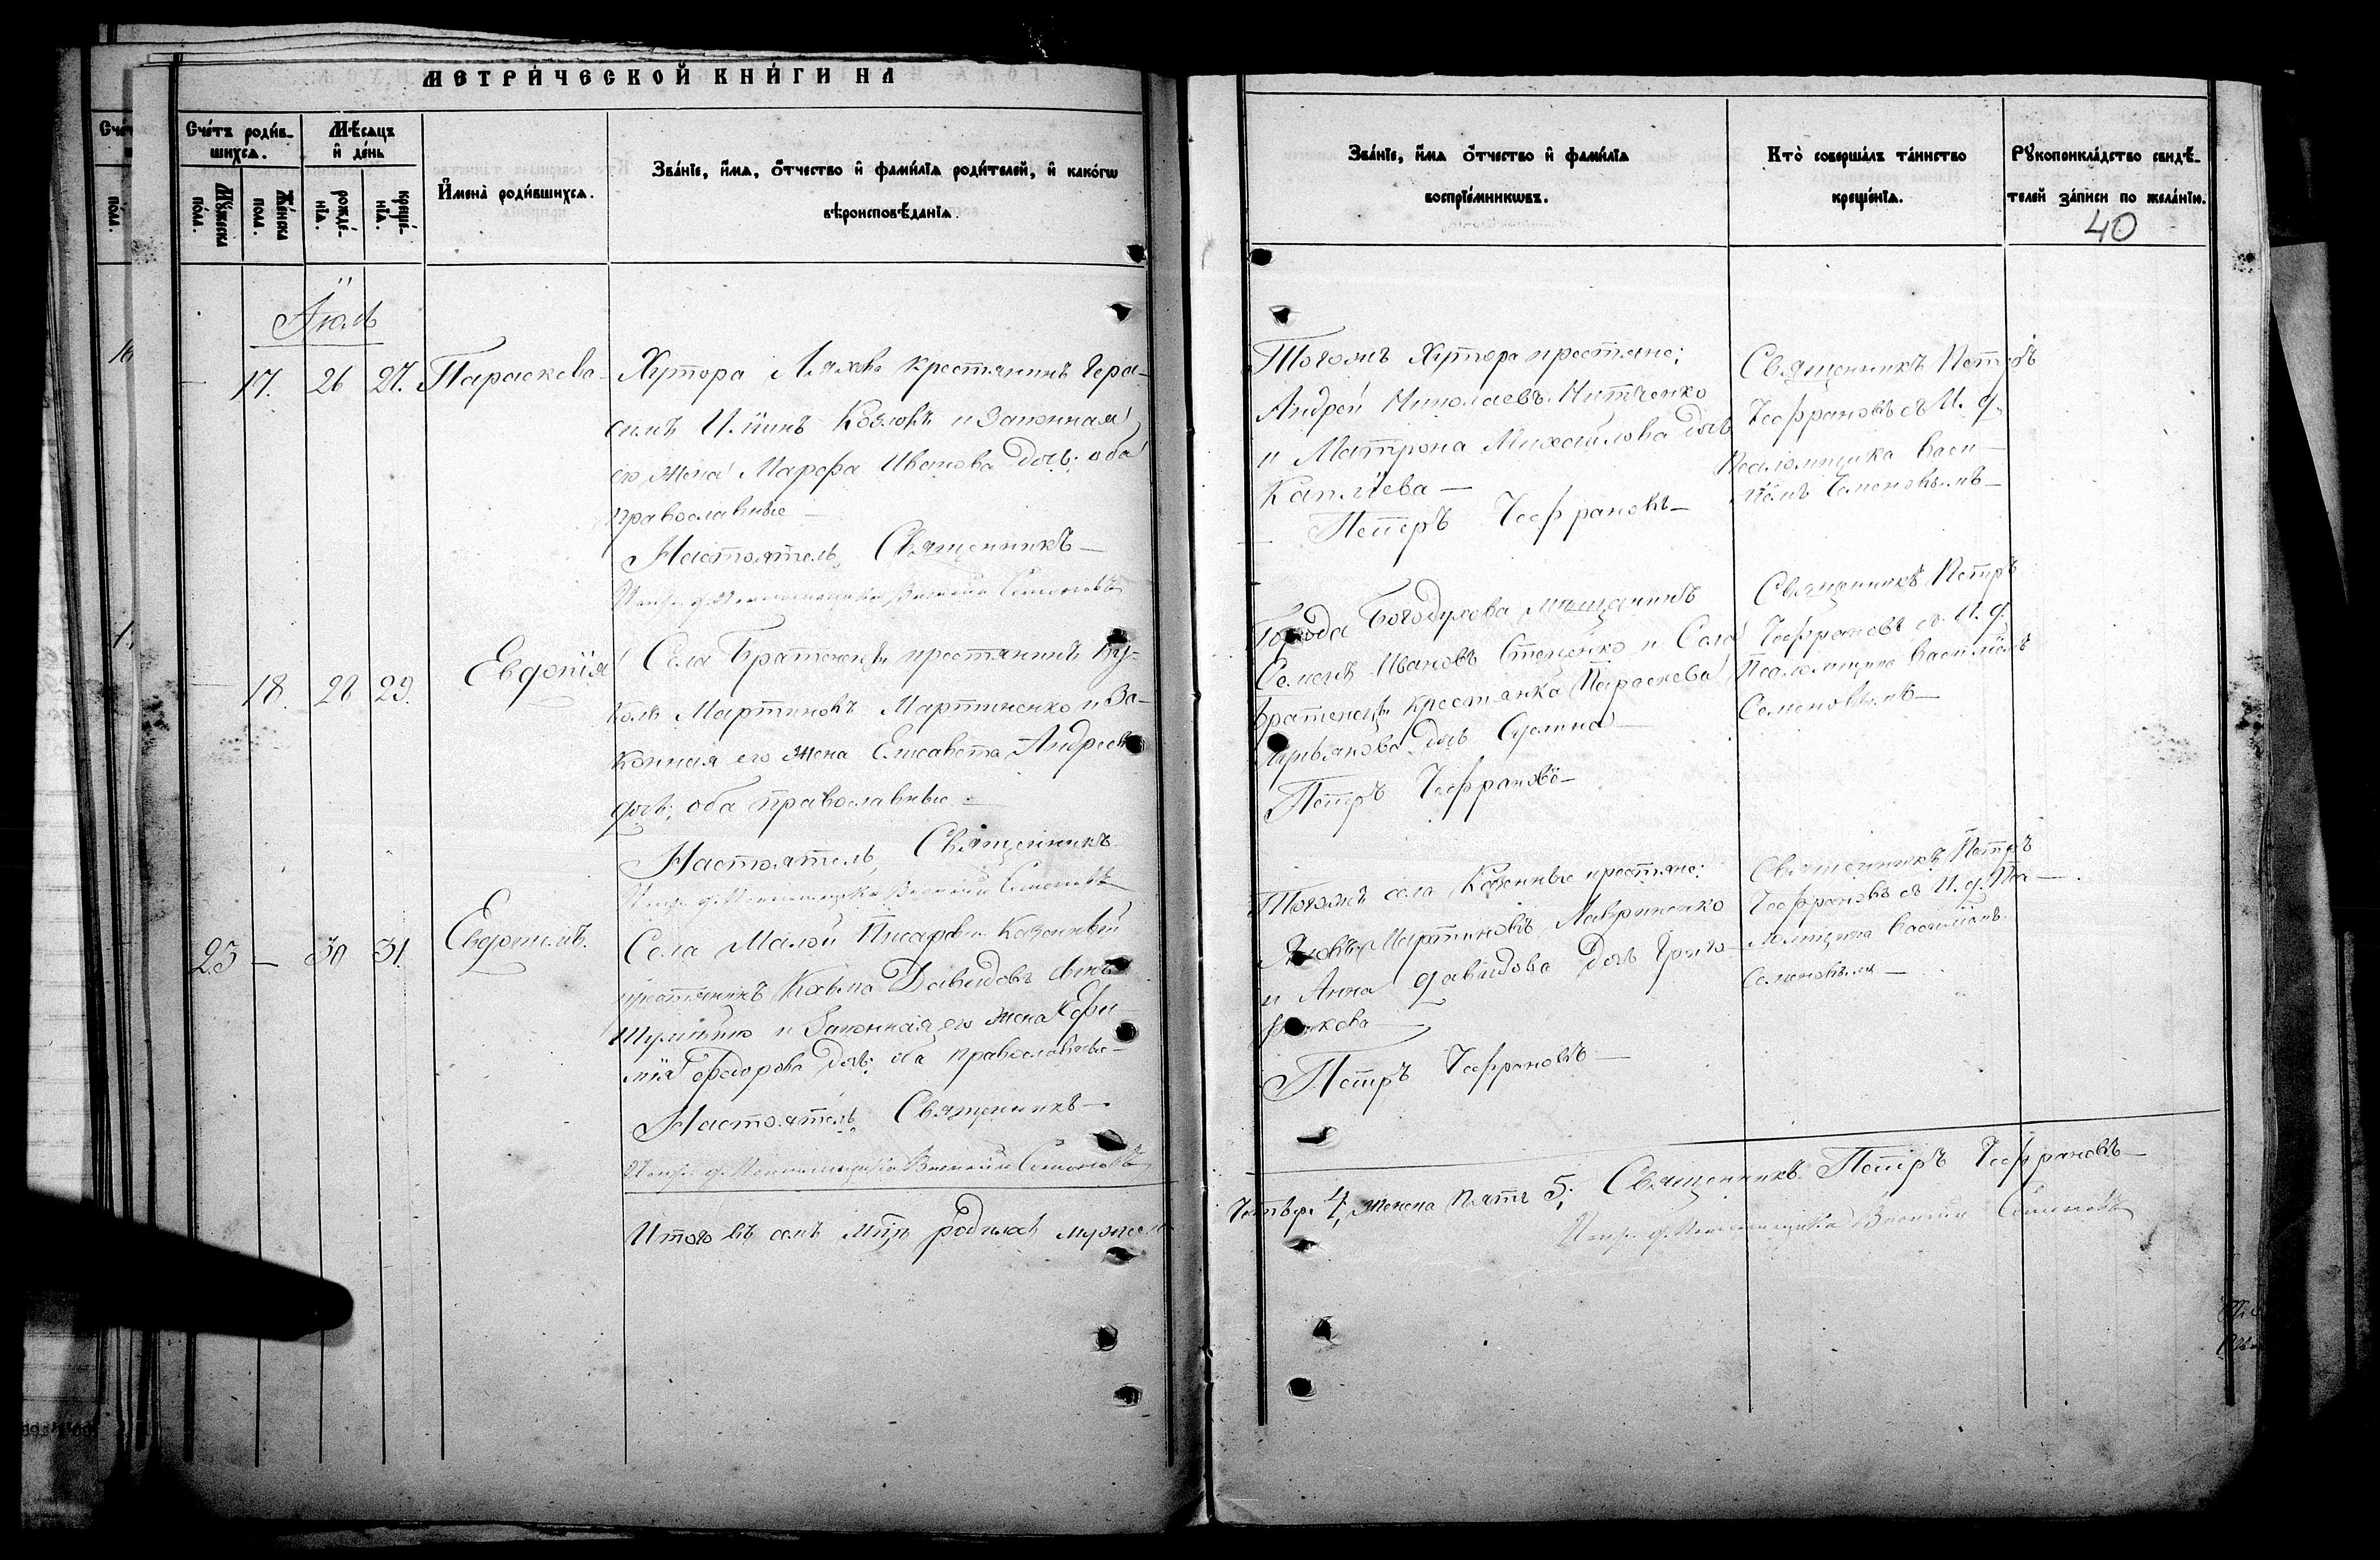 МЕТРИ́ЧЕСКОЙ КНИ́ГИ НА
Сче́тъ роди́в-
шихся.
Му́жеска
по́ла.
Же́нска
пола.
Мѣ́сяцъ
и де́нь
рожде́-
нія.
креще́-
нія.
Имена̀ роди́вшихся.
Зва́ніе, и́мя, о́тчество и фами́лія роди́телей, и како́гѡ
вѣроисповѣ́данія.
Іюль
17. 26 27. Параскева
Хутора Ляхова крестьянинъ Гера-
симъ Ильинъ Козловъ и законная
его жена Марфа Иванова дочь; оба
православные
Настоятель, Священникъ
Испр. д. Псаломщика Василій Семеновъ
18. 28 29. Евдокія
Села Братеницъ крестьянинъ
Мартиновъ Мартиненко и За-
конная его жена Елисавета Андреева
дочь; оба православные
Настоятель, Священникъ
Испр. д. Псаломщика Василій Семеновъ
23 — 30 31. Евдокимъ.
Села Малой Писаревки Казенный
крестьянинъ Козьма Давидовъ
и Законная его жена
Феодорова дочь; оба православные
Настоятель, Священникъ
Испр. д. Псаломщика Василій Семеновъ
Итого въ семъ мцѣ родилось мужеска
Зва́ніе, и́мя о́тчество и фами́лія
воспріе́мникѡвъ.
Кто̀ соверша́лъ та́инство
креще́нія.
Рꙋкоприкла́дство свидѣ́-
телей за́писи по жела́нію.
40
Тогожъ Хутора крестьяне:
Андрей Николаевъ Нитченко
и Матрона Михайлова дочь
Каплiева
Петръ Чефрановъ
Священникъ Петръ
Чефрановъ съ И. д.
Псаломщика Васи-
ліемъ Семеновымъ
Города Богодухова мѣщанинъ
Семенъ Ивановъ Стеценко и Села
Братеницъ крестьянка Параскева
дочь
Петръ Чефрановъ
Священникъ Петръ
Чефрановъ съ И. д.
Псаломщика Василіемъ
Семеновымъ
Тогожъ села Казенные крестьяне:
Яковъ Мартиновъ Лавриненко
и Анна Давидова дочь
Петръ Чефрановъ
Священникъ Петръ
Чефрановъ съ И. д. Пса-
ломщика Василіемъ
Семеновымъ
Четверо 4, женска Пять 5; Священникъ Петръ Чефрановъ
Испр. д. Псаломщика Василій Семеновъ